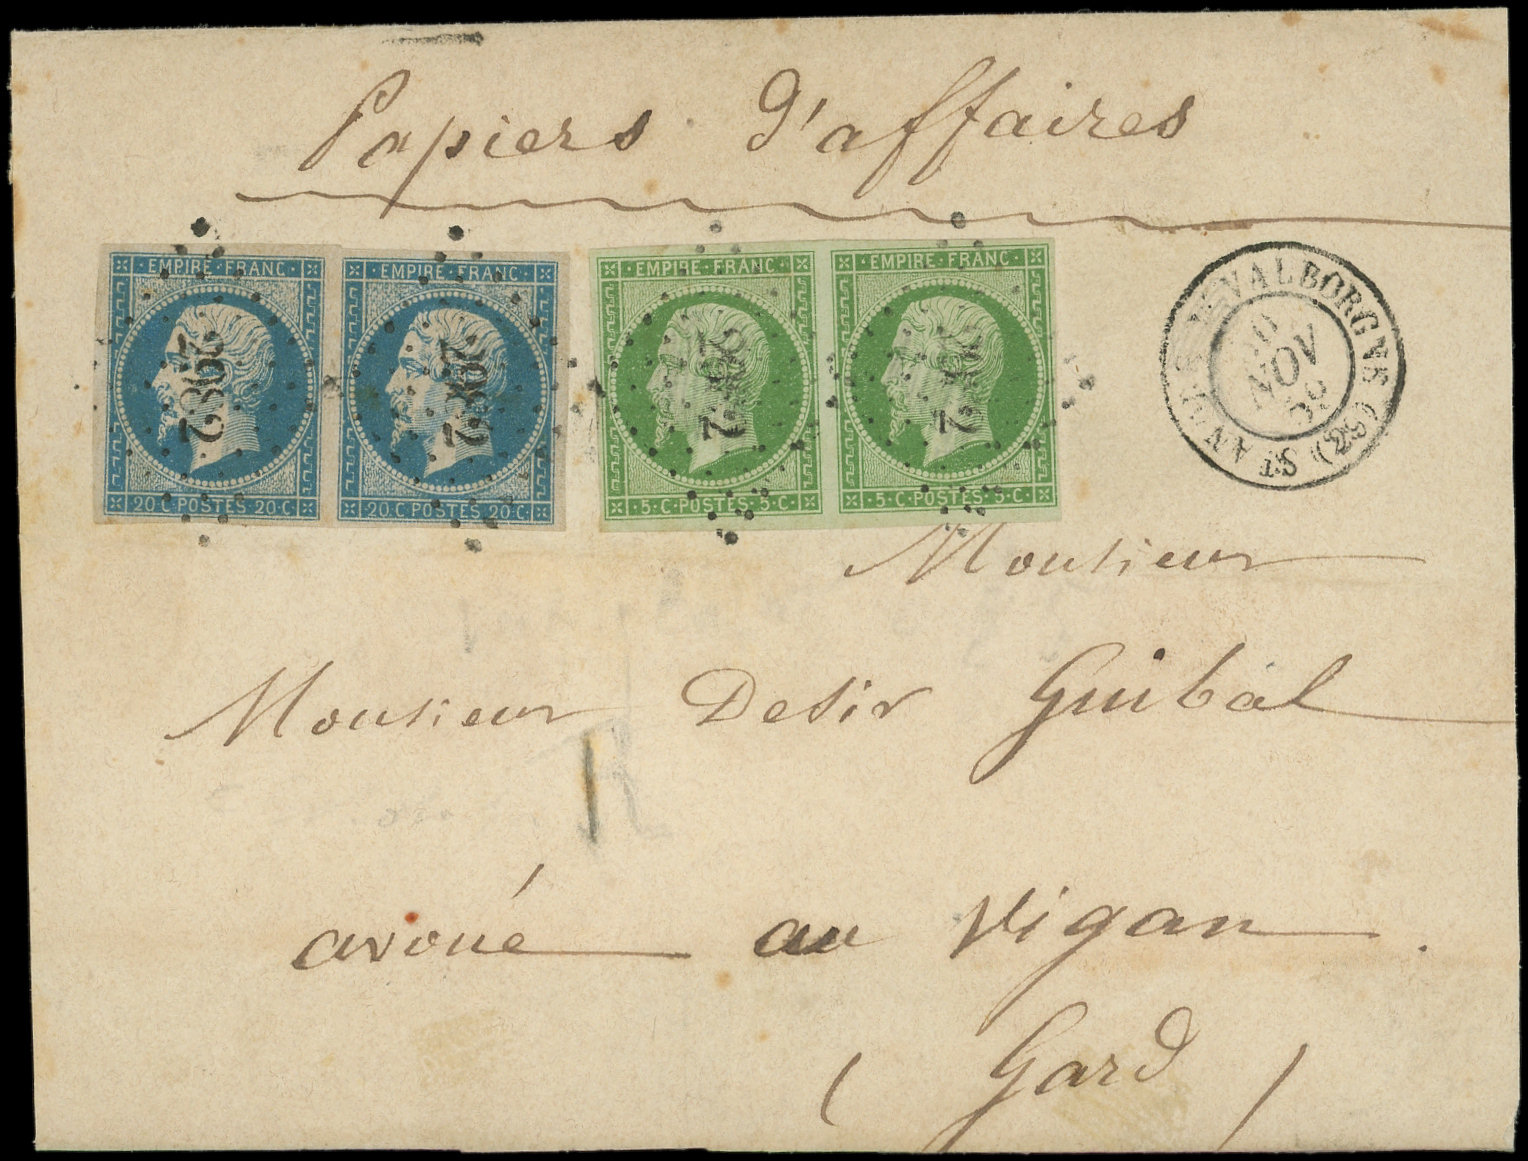 Papiers d'affaires
EMPIRE·FRANC·
20·C·POSTES·20·C·
EMPIRE·FRANC·
20·C·POSTES·20·C·
EMPIRE·FRANC·
·5·C·POSTES·5·C·
EMPIRE·FRANC·
·5·C·POSTES·5·C·
2982
2982
ST ANDRÉ DE VALBORGNE (29)
NOV
59
Monsieur
Monsieur Desir Guibal
avoué au Vigan.
(Gard)